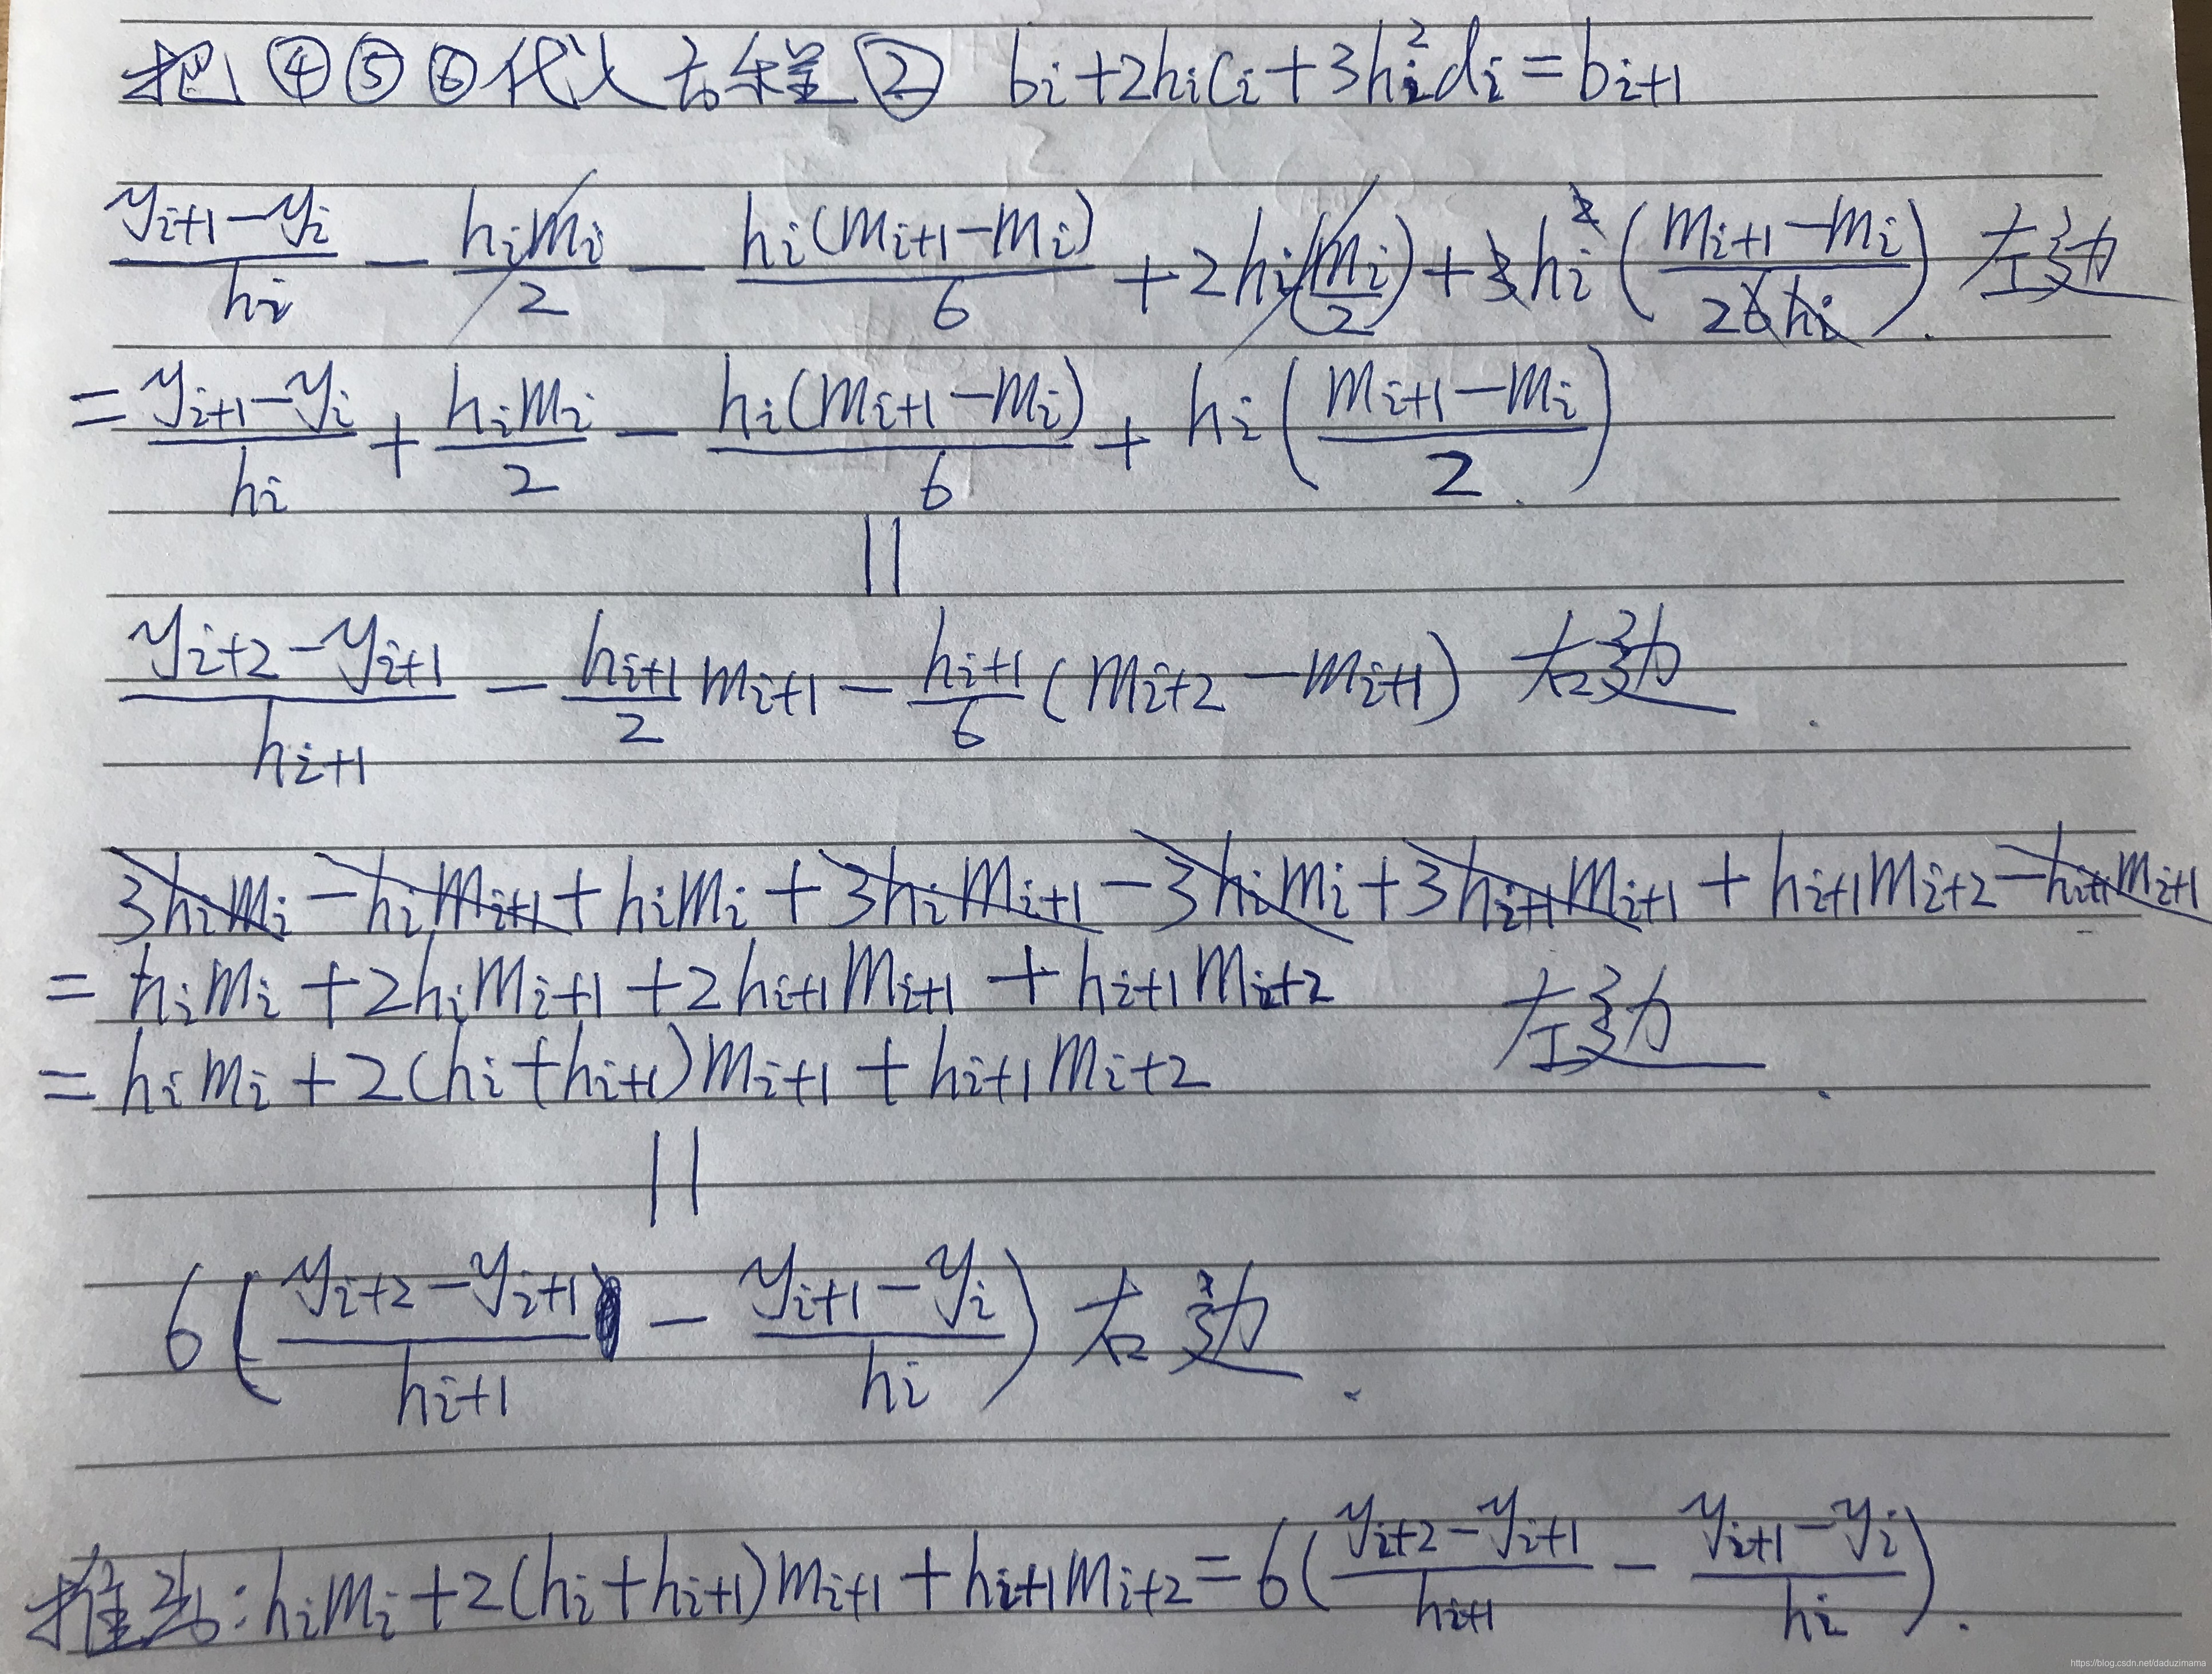 把④⑤⑥代入方程② bᵢ+2hᵢcᵢ+3hᵢ²dᵢ=bᵢ₊₁
(yᵢ₊₁-yᵢ)/hᵢ - hᵢmᵢ/2 - hᵢ(mᵢ₊₁-mᵢ)/6 + 2hᵢ(mᵢ/2) + 3hᵢ²((mᵢ₊₁-mᵢ)/2 6hᵢ) 左边
= (yᵢ₊₁-yᵢ)/hᵢ + hᵢmᵢ/2 - hᵢ(mᵢ₊₁-mᵢ)/6 + hᵢ((mᵢ₊₁-mᵢ)/2)
||
(yᵢ₊₂-yᵢ₊₁)/hᵢ₊₁ - (hᵢ₊₁/2)mᵢ₊₁ - (hᵢ₊₁/6)(mᵢ₊₂-mᵢ₊₁) 右边
3hᵢmᵢ-hᵢmᵢ₊₁+hᵢmᵢ+3hᵢmᵢ₊₁-3hᵢmᵢ+3hᵢ₊₁mᵢ₊₁+hᵢ₊₁mᵢ₊₂-hᵢ₊₁mᵢ₊₁
= hᵢmᵢ+2hᵢmᵢ₊₁+2hᵢ₊₁mᵢ₊₁+hᵢ₊₁mᵢ₊₂ 左边
= hᵢmᵢ+2(hᵢ+hᵢ₊₁)mᵢ₊₁+hᵢ₊₁mᵢ₊₂
||
6((yᵢ₊₂-yᵢ₊₁)/hᵢ₊₁ - (yᵢ₊₁-yᵢ)/hᵢ) 右边
推出:hᵢmᵢ+2(hᵢ+hᵢ₊₁)mᵢ₊₁+hᵢ₊₁mᵢ₊₂=6((yᵢ₊₂-yᵢ₊₁)/hᵢ₊₁ - (yᵢ₊₁-yᵢ)/hᵢ).
https://blog.csdn.net/daduzimama